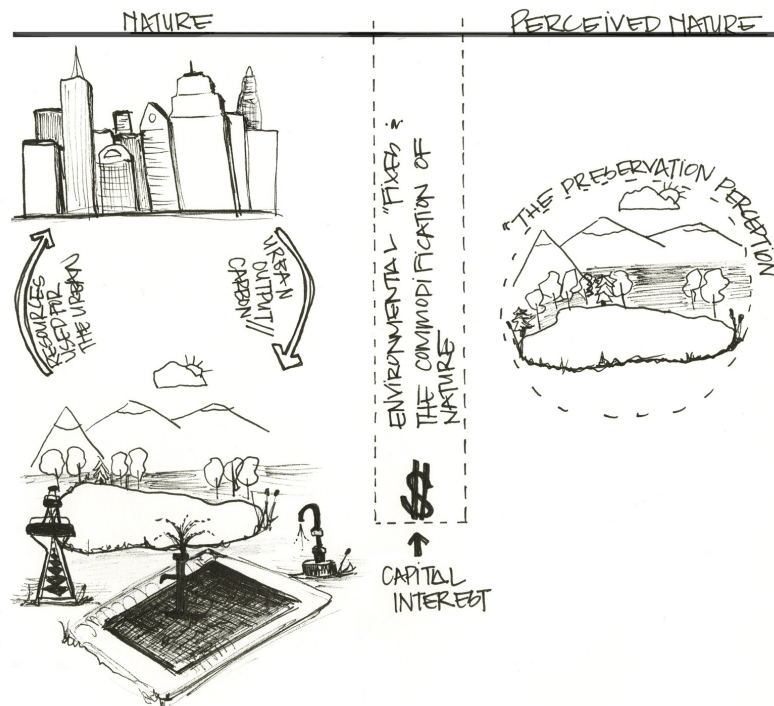 NATURE
PERCEIVED NATURE
RESOURCES
USED FOR
THE URBAN
URBAN
OUTPUT//
CARBON
ENVIRONMENTAL "FIXES:
THE COMMODIFICATION OF
NATURE
$
CAPITAL
INTEREST
"THE PRESERVATION PERCEPTION